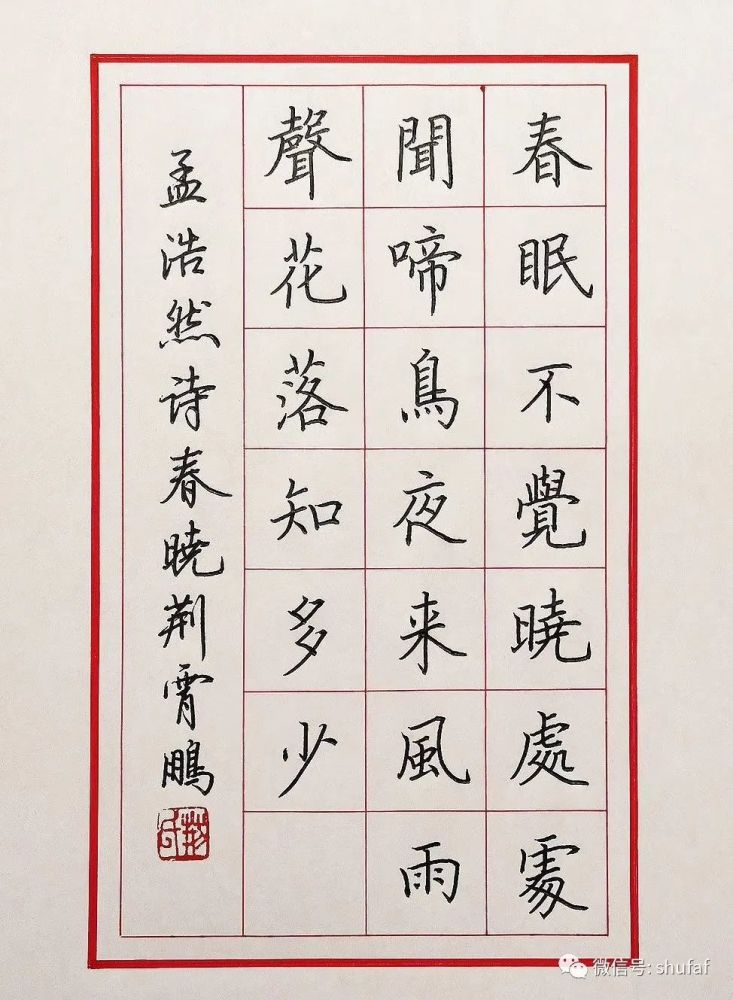 春眠不覺曉處處
聞啼鳥夜来風雨
聲花落知多少
孟浩然诗春曉荆霄鵬
微信号: shufaf